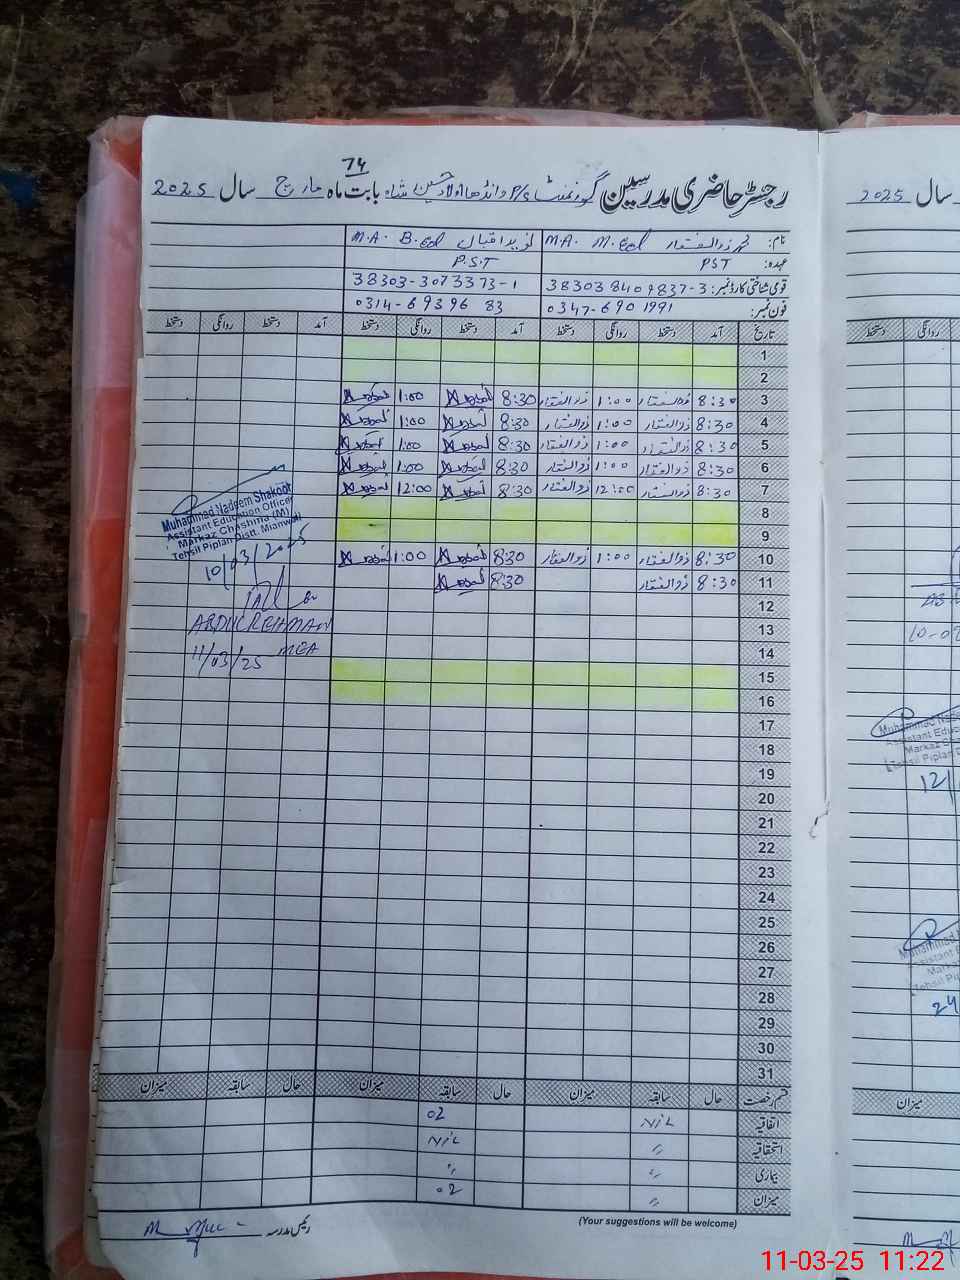 74
رجسٹر حاضری مدرسین گورنمنٹ P/S وانڈھا اولاد حسین شاہ بابت ماہ مارچ سال 2025
نام: محمد ذوالفقار M.A. M.Ed نوید اقبال M.A. B.Ed
عہدہ: PST P.S.T
قومی شناختی کارڈ نمبر: 38303 8409837-3 38303-3073373-1
فون نمبر: 0347-6901991 0314-6939683
تاریخ آمد دستخط روانگی دستخط آمد دستخط روانگی دستخط آمد دستخط روانگی دستخط
1
2
3 8:30 ذوالفقار 1:00 ذوالفقار 8:30 1:00
4 8:30 ذوالفقار 1:00 ذوالفقار 8:30 1:00
5 8:30 ذوالفقار 1:00 ذوالفقار 8:30 1:00
6 8:30 ذوالفقار 1:00 ذوالفقار 8:30 1:00
7 8:30 ذوالفقار 12:00 ذوالفقار 8:30 12:00
8
9
10 8:30 ذوالفقار 1:00 ذوالفقار 8:30 1:00
11 8:30 ذوالفقار 8:30
12
13
14
15
16
17
18
19
20
21
22
23
24
25
26
27
28
29
30
31
Muhammad Nadeem Shakoor
Assistant Education Officer
Markaz Chashma (M)
Tehsil Piplan Distt. Mianwali
10/03/2025
ABDUL REHMAN
11/03/25 MEA
قسم رخصت حال سابقہ میزان حال سابقہ میزان حال سابقہ میزان
اتفاقیہ NIL 02
استحقاقیہ " NIL
بیماری " "
میزان " 02
(Your suggestions will be welcome)
رئیس مدرسہ
سال 2025
دستخط روانگی
10-0
Muhammad Nade
Assistant Educ
Markaz
Tehsil Piplan D
12/
Muhammad
Assistant
Mark
Tehsil Pi
24
میزان
11-03-25 11:22